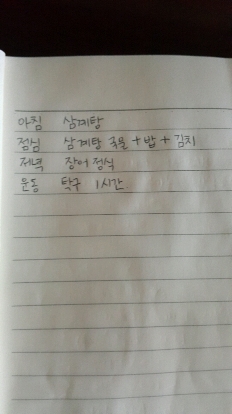 아침 삼계탕
점심 삼계탕 국물 + 밥 + 김치
저녁 장어 정식
운동 탁구 1시간